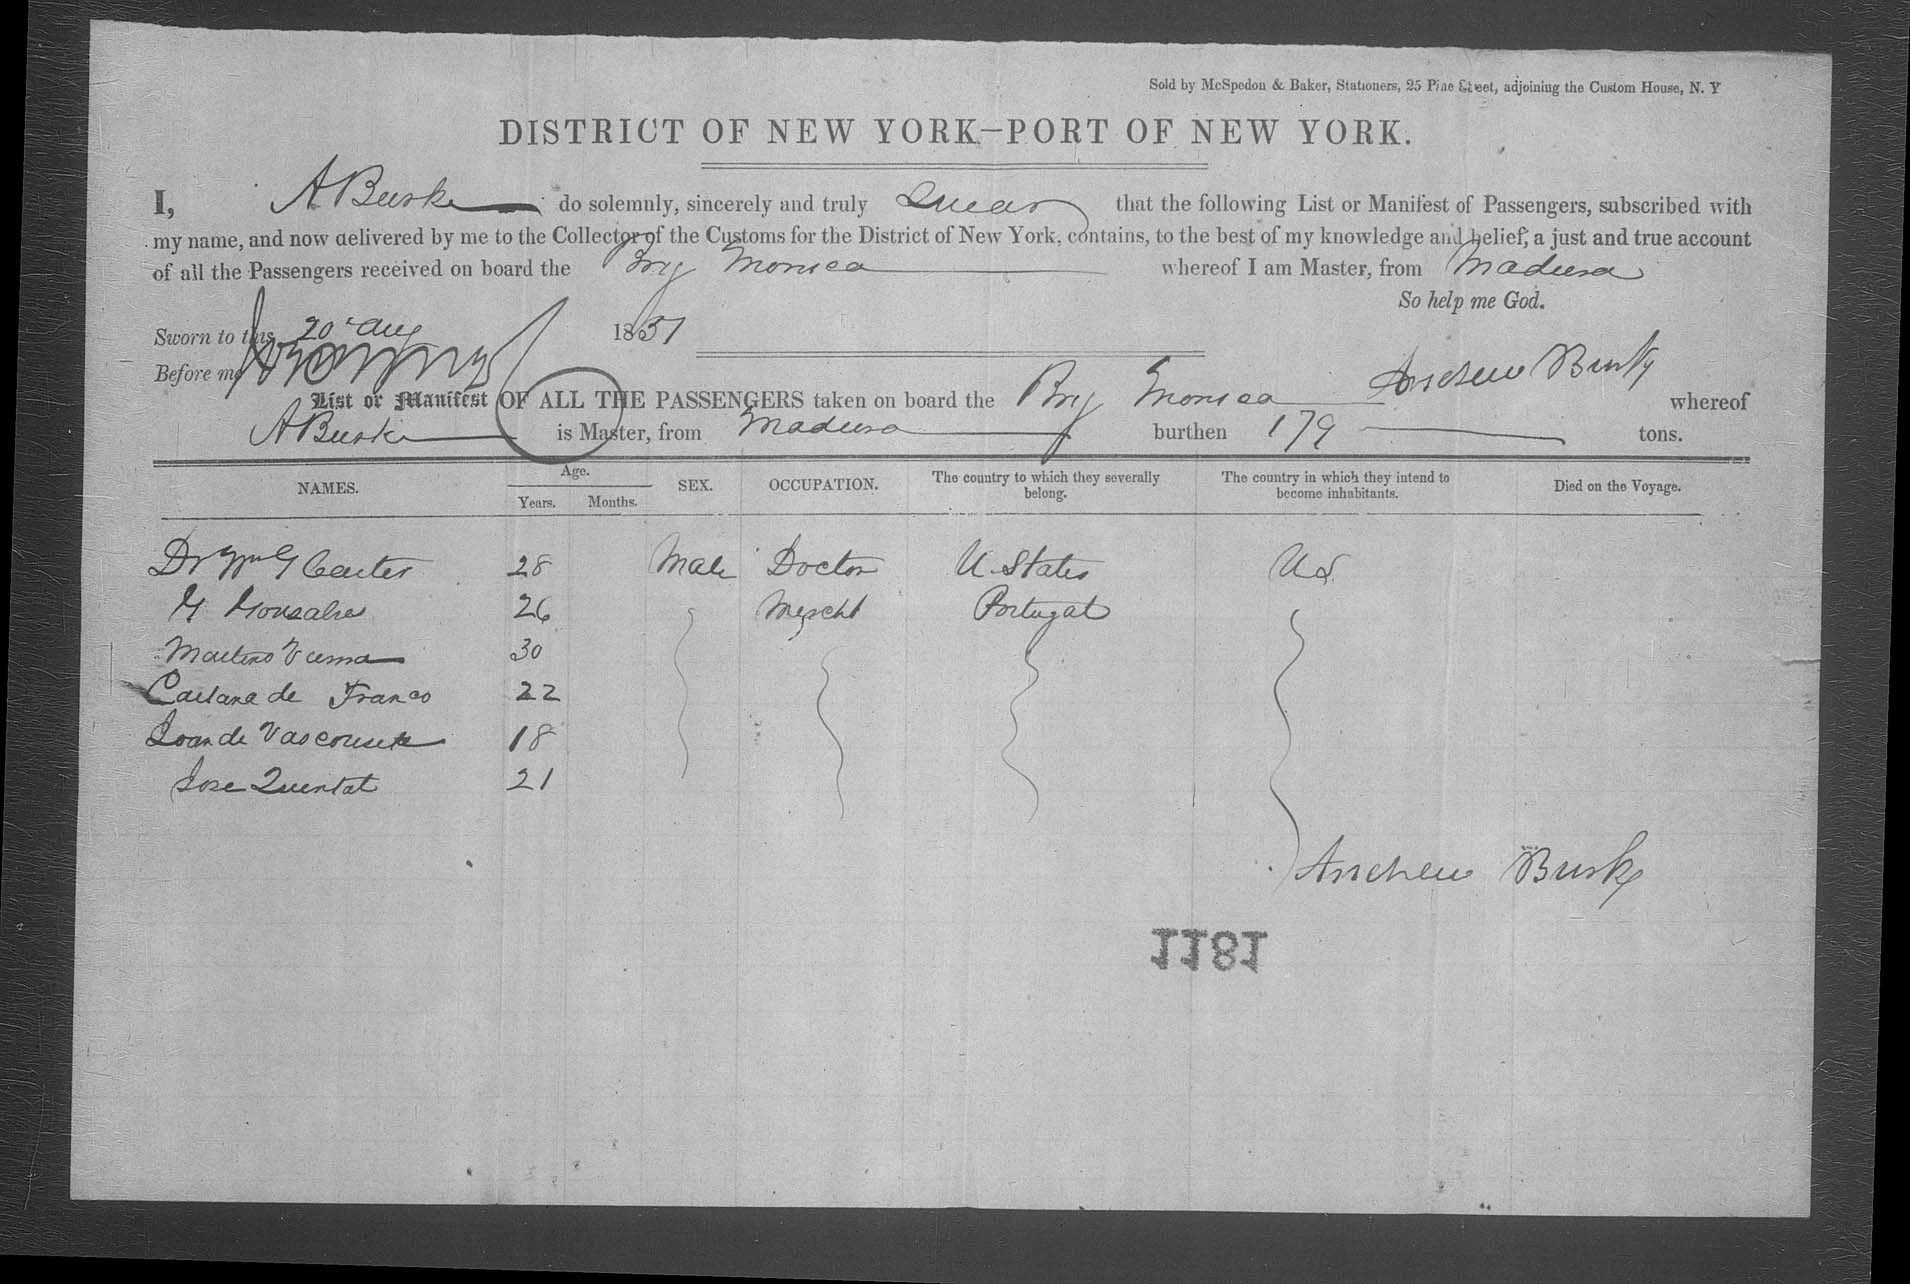 Sold by McSpedon & Baker, Stationers, 25 Pine Street, adjoining the Custom House, N. Y
DISTRICT OF NEW YORK—PORT OF NEW YORK.
I, A Burke do solemnly, sincerely and truly swear that the following List or Manifest of Passengers, subscribed with
my name, and now delivered by me to the Collector of the Customs for the District of New York, contains, to the best of my knowledge and belief, a just and true account
of all the Passengers received on board the Brig Monica whereof I am Master, from Madeira
So help me God.
Sworn to this 20 Aug 1851
Before me
Andrew Burke
List or Manifest OF ALL THE PASSENGERS taken on board the Brig Monica whereof
A Burke is Master, from Madeira burthen 179 tons.
NAMES. Age. Years. Months. SEX. OCCUPATION. The country to which they severally belong. The country in which they intend to become inhabitants. Died on the Voyage.
Dr Wm G 28 Male Doctor U States US
26 Mercht Portugal
30
de Franco 22
18
Jose 21
Andrew Burke
1181